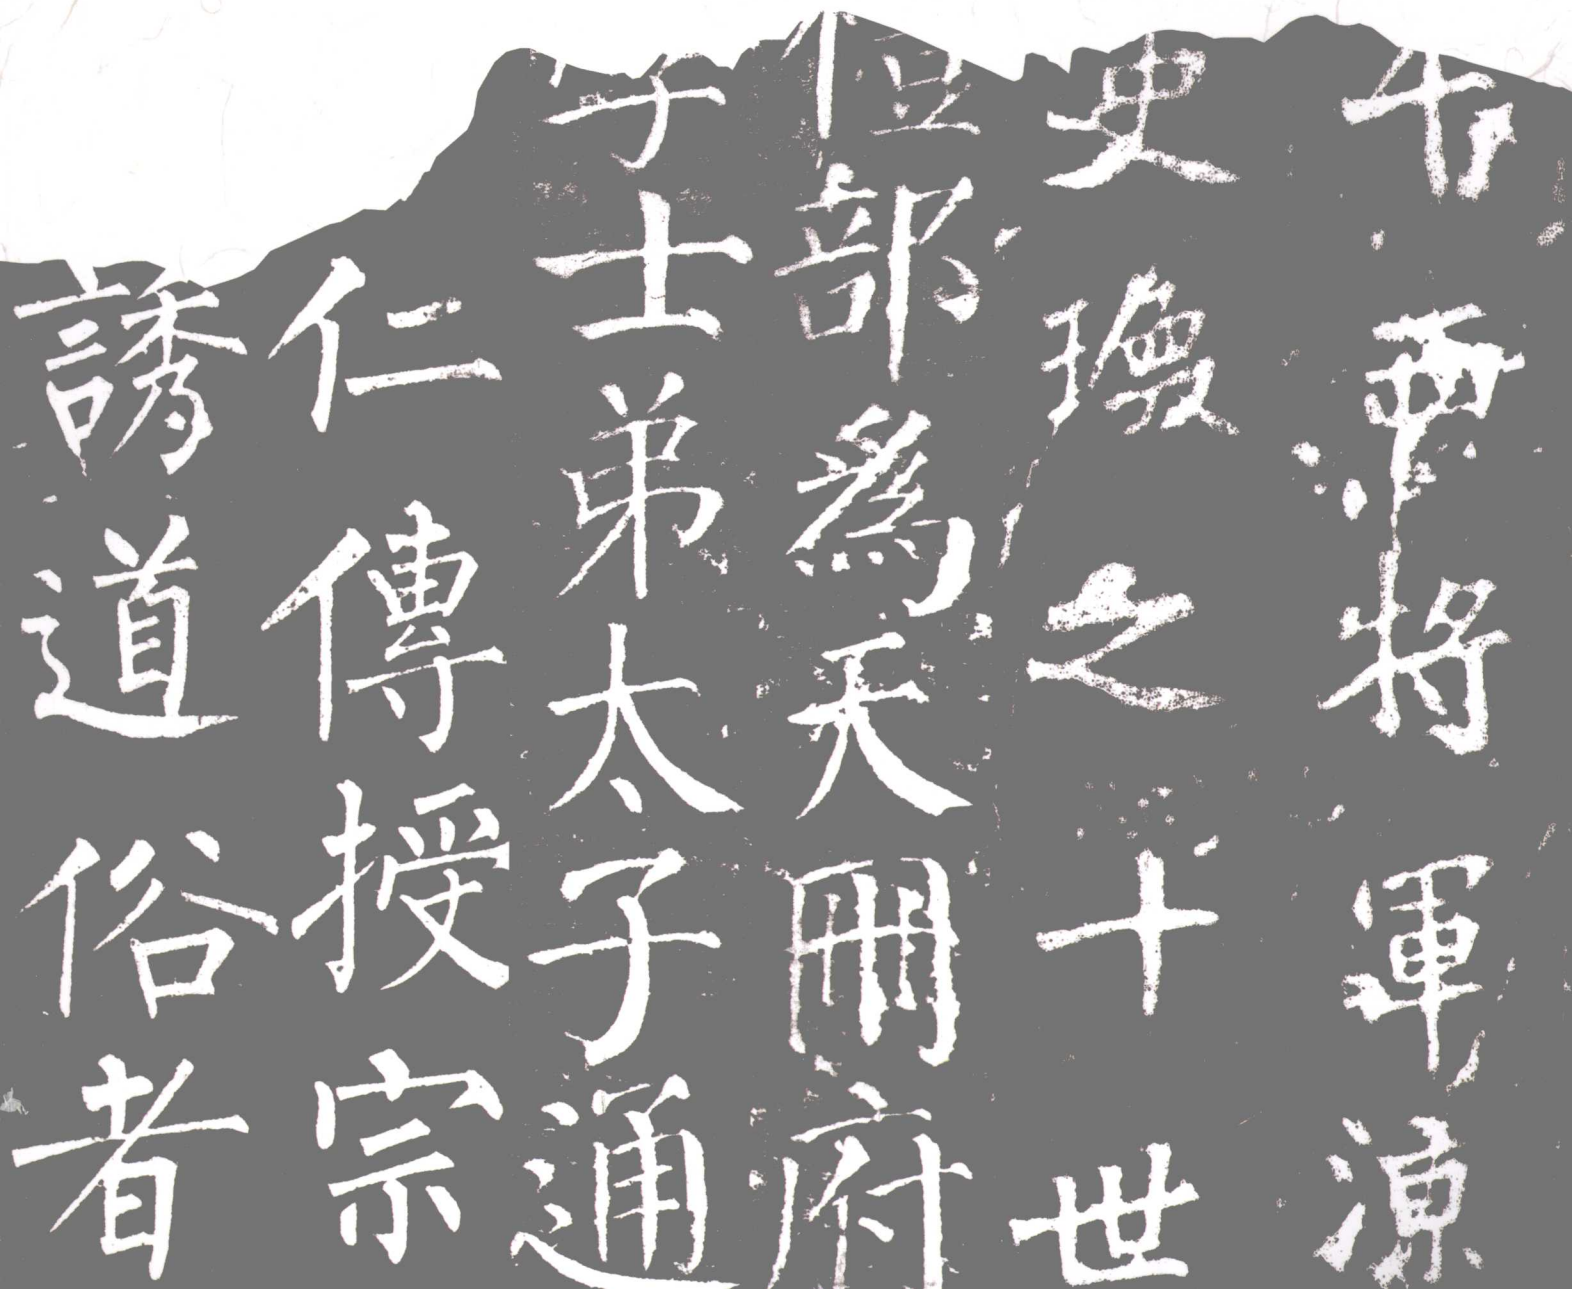 將軍涼
史瓊之十世
部爲天冊府
士弟太子通
仁傳授宗
誘道俗者